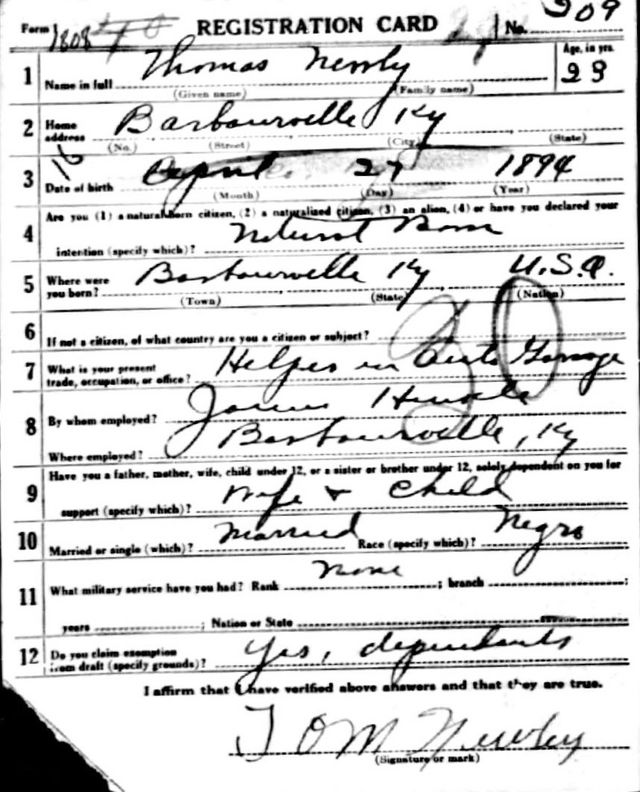 Form 1808 REGISTRATION CARD No. 209
1 Name in full Thomas Newly Age, in yrs. 23
(Given name) (Family name)
2 Home address Barbourville Ky
(No.) (Street) (City) (State)
16
3 Date of birth April 27 1894
(Month) (Day) (Year)
Are you (1) a natural born citizen, (2) a naturalized citizen, (3) an alien, (4) or have you declared your
4 intention (specify which)? Natural Born
5 Where were you born? Barbourville Ky U.S.A.
(Town) (State) (Nation)
6 If not a citizen, of what country are you a citizen or subject?
7 What is your present trade, occupation, or office? Helper in Auto Garage
8 By whom employed? James
Where employed? Barbourville, Ky
Have you a father, mother, wife, child under 12, or a sister or brother under 12, solely dependent on you for
9 support (specify which)? Wife & Child
10 Married or single (which)? Married Race (specify which)? Negro
11 What military service have you had? Rank None ; branch ;
years ; Nation or State
12 Do you claim exemption from draft (specify grounds)? Yes, dependants
I affirm that I have verified above answers and that they are true.
TOM Newley
(Signature or mark)